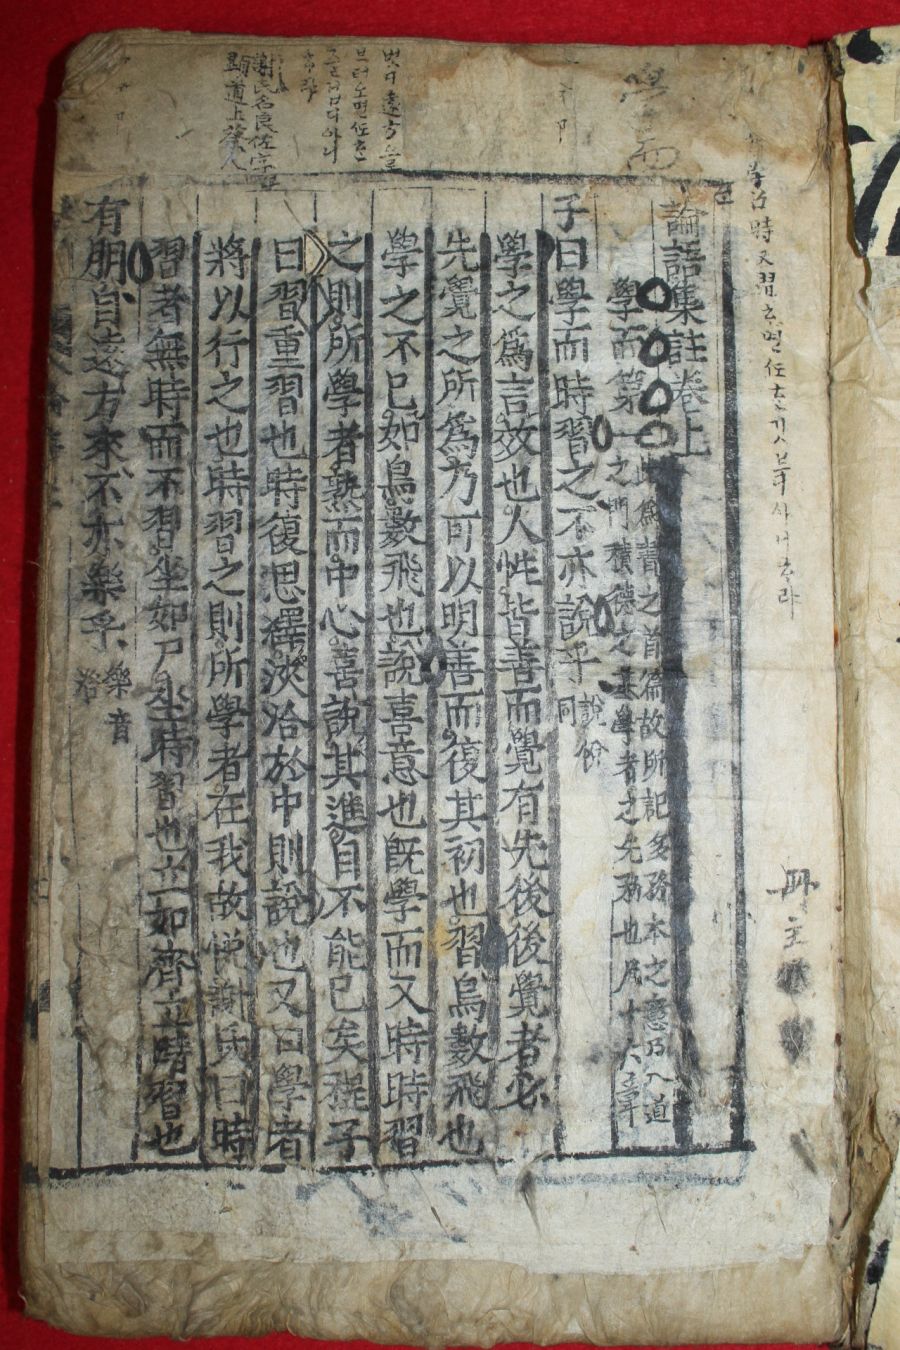 論語集註卷上
學而第一
此爲書之首篇故所記多務本之意乃入道
之門積德之基學者之先務也凡十六章
子曰學而時習之不亦說乎
說悅
同
學之爲言效也人性皆善而覺有先後後覺者必
先覺之所爲乃可以明善而復其初也習鳥數飛也
學之不已如鳥數飛也說喜意也旣學而又時時習
之則所學者熟而中心喜說其進自不能已矣程子
曰習重習也時復思繹浹洽於中則說也又曰學者
將以行之也時習之則所學者在我故悅謝氏曰時
習者無時而不習坐如尸坐時習也立如齊立時習也
有朋自遠方來不亦樂乎
樂音
洛
學而
謝氏名良佐字
顯道上蔡人
冊主